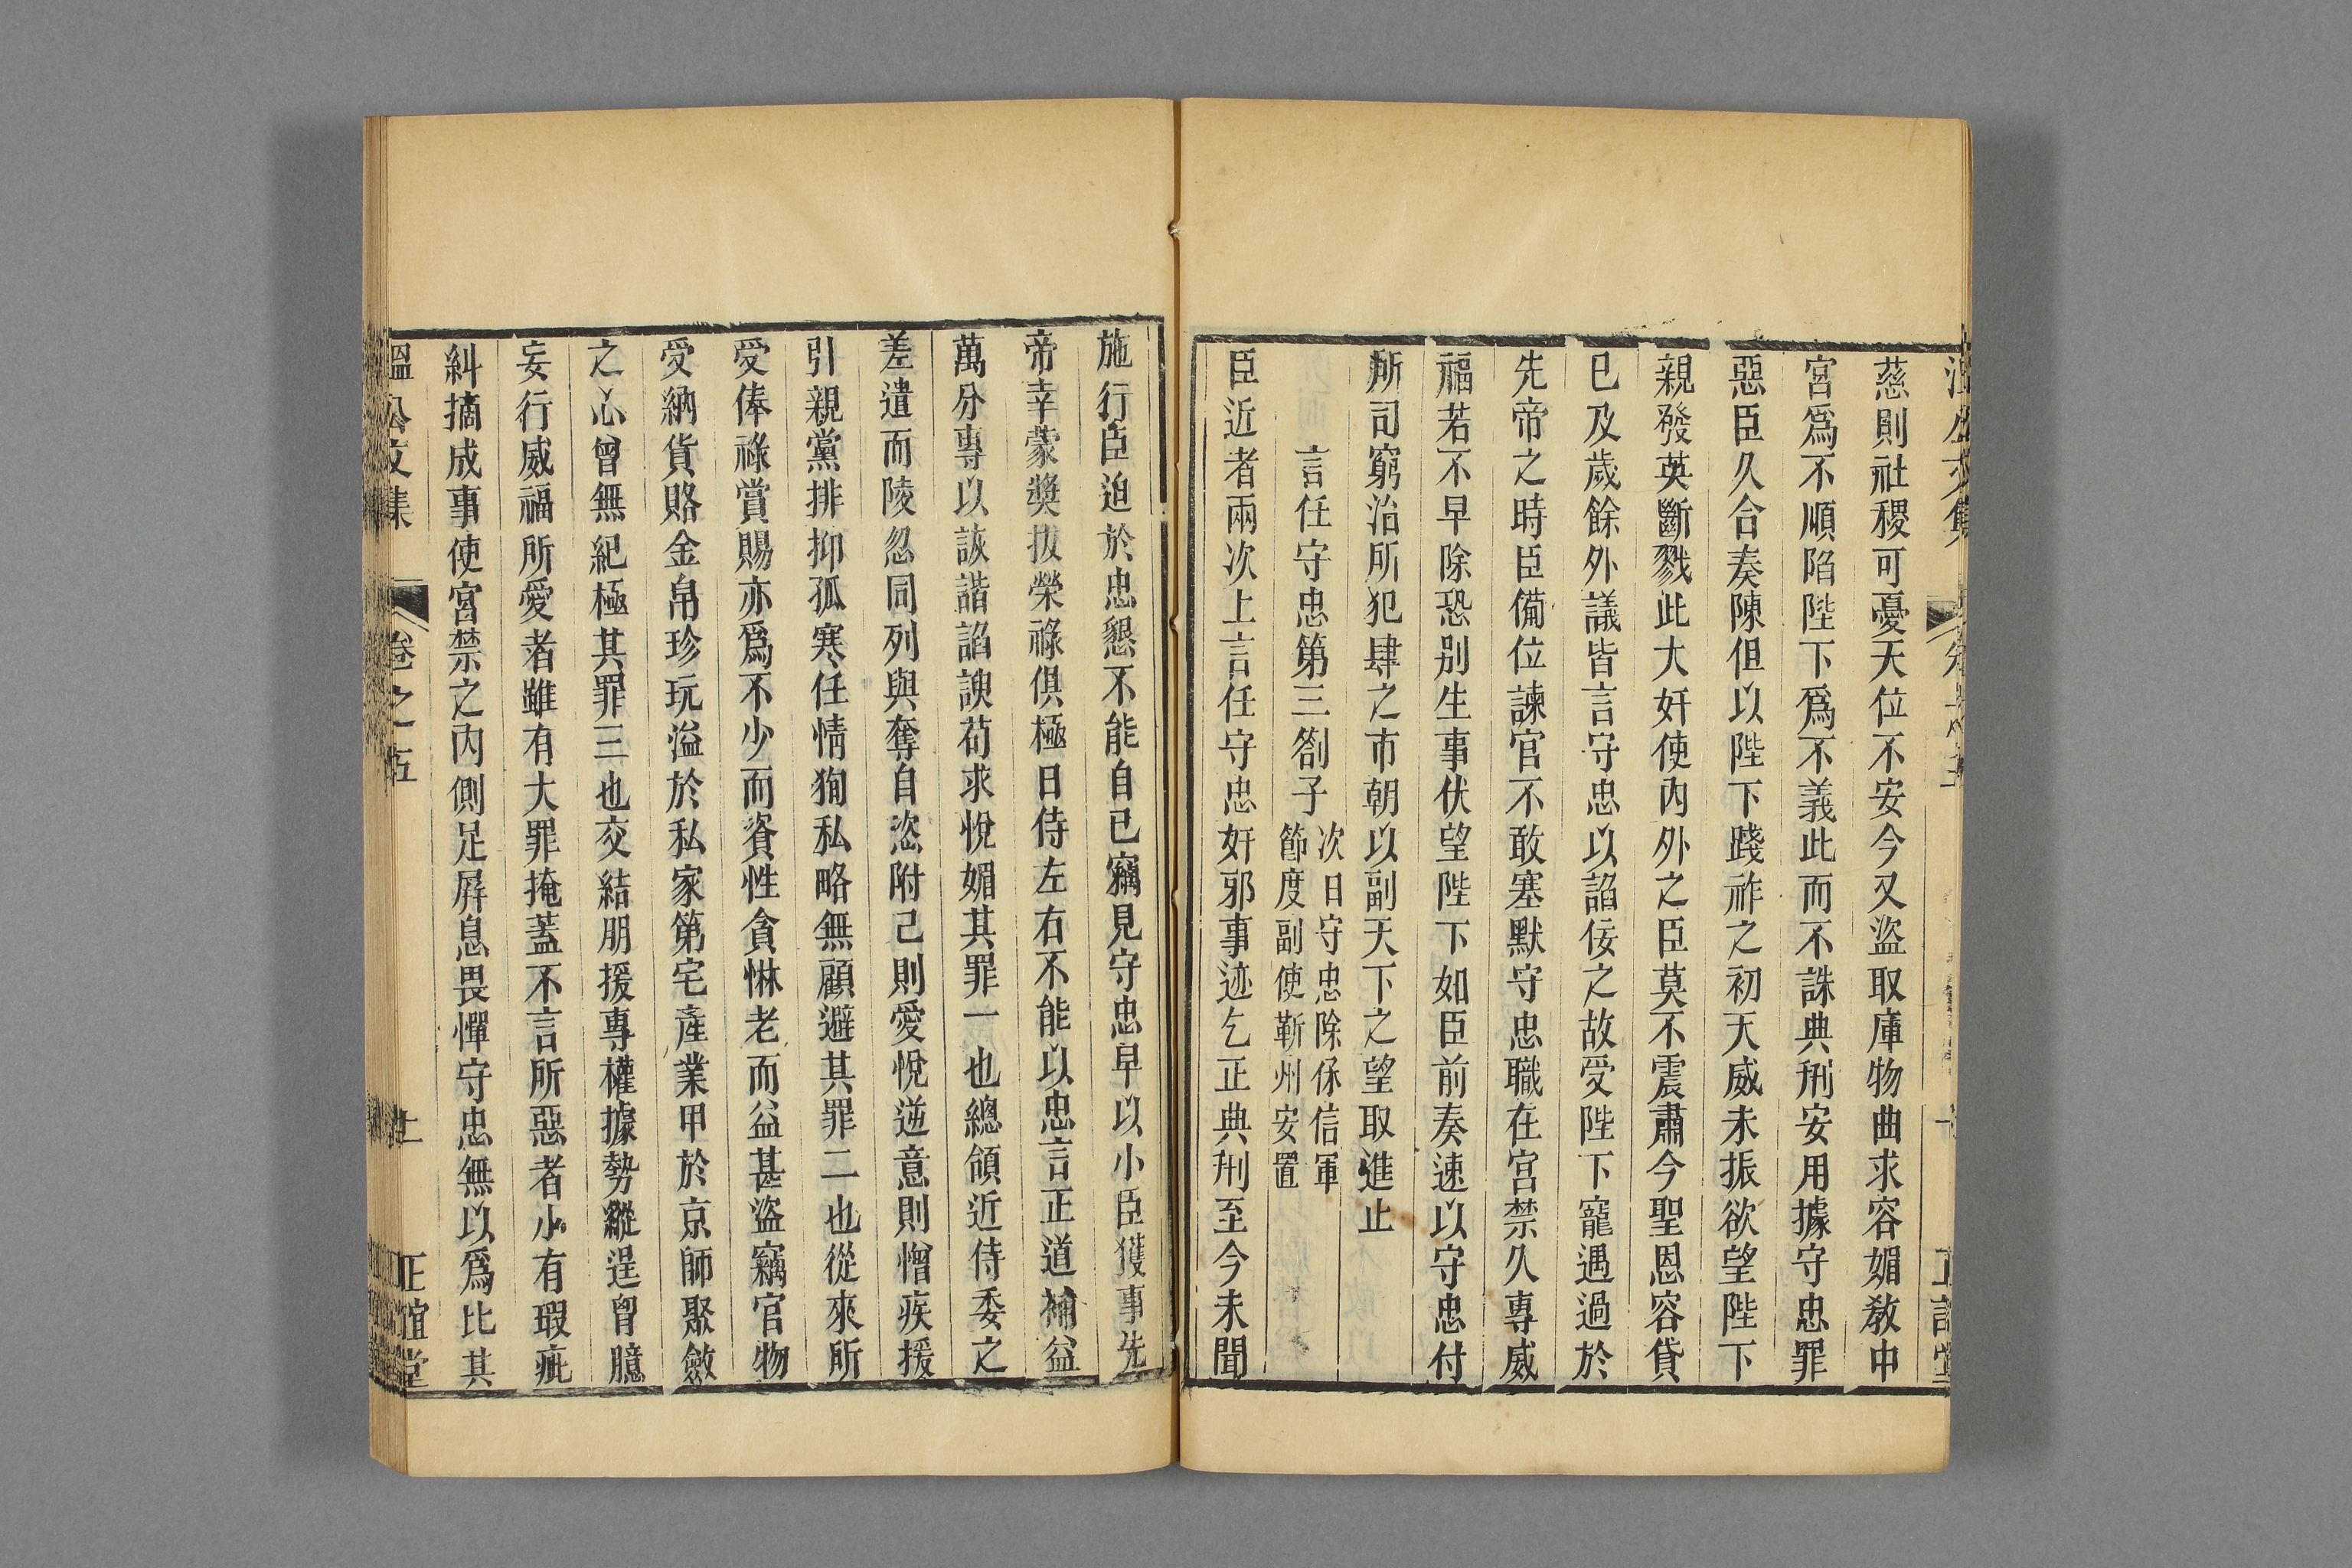 慈則社稷可憂天位不安今又盜取庫物曲求容媚教中
宮爲不順陷陛下爲不義此而不誅典刑安用據守忠罪
惡臣久合奏陳但以陛下踐祚之初天威未振欲望陛下
親發英斷戮此大奸使內外之臣莫不震肅今聖恩容貸
已及歲餘外議皆言守忠以諂佞之故受陛下寵遇過於
先帝之時臣備位諫官不敢塞默守忠職在宮禁久專威
福若不早除恐別生事伏望陛下如臣前奏速以守忠付
所司窮治所犯肆之市朝以副天下之望取進止
言任守忠第三劄子
次日守忠除保信軍
節度副使蘄州安置
臣近者兩次上言任守忠奸邪事迹乞正典刑至今未聞
施行臣迫於忠懇不能自已竊見守忠早以小臣獲事先
帝幸蒙獎拔榮祿俱極日侍左右不能以忠言正道補益
萬分專以詼諧諂諛苟求悅媚其罪一也總領近侍委之
差遣而陵忽同列與奪自恣附己則愛悅逆意則憎疾援
引親黨排抑孤寒任情狥私略無顧避其罪二也從來所
受俸祿賞賜亦爲不少而資性貪惏老而益甚盜竊官物
受納貨賂金帛珍玩溢於私家第宅產業甲於京師聚斂
之心曾無紀極其罪三也交結朋援專權據勢縱逞胷臆
妄行威福所愛者雖有大罪掩蓋不言所惡者小有瑕疵
糾摘成事使宮禁之內側足屏息畏憚守忠無以爲比其
溫公文集
卷之五
十一
正誼堂